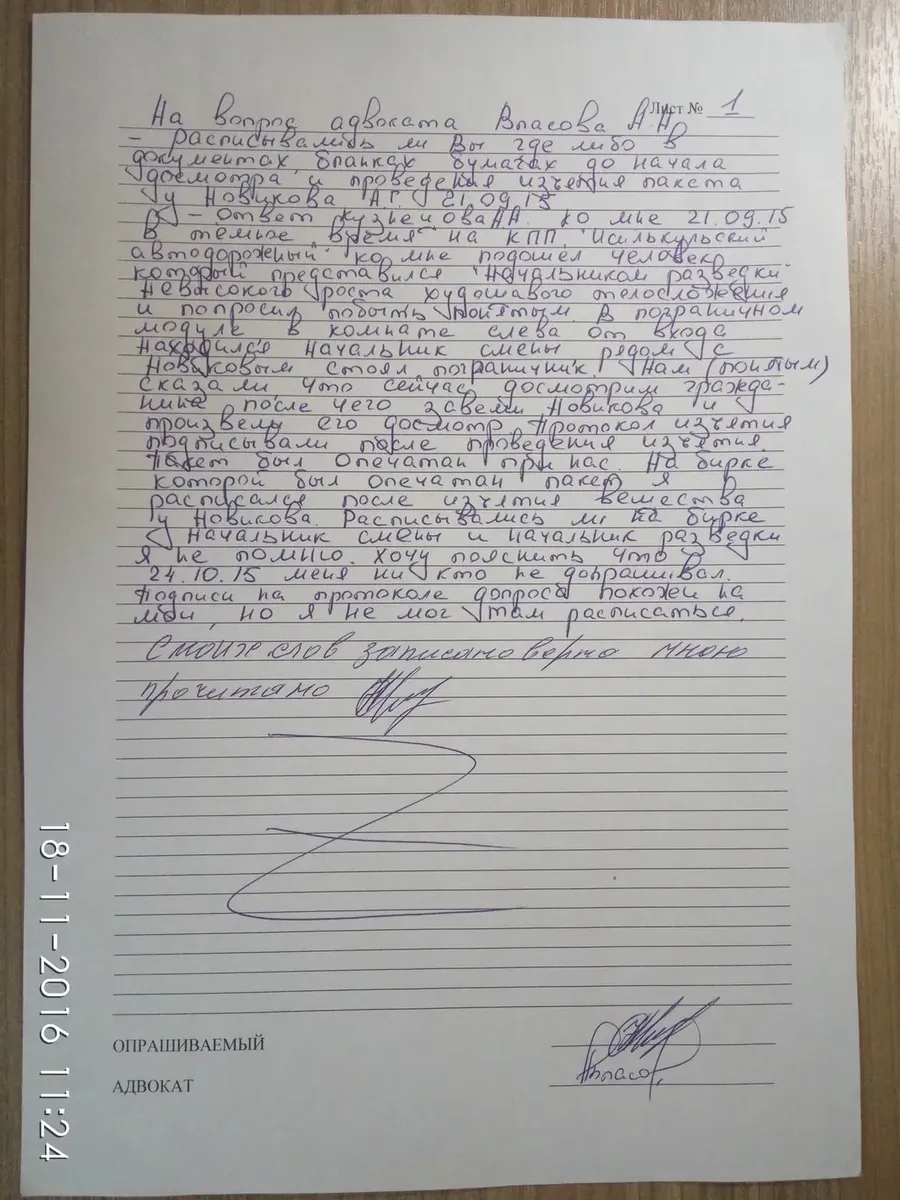 Лист № 1
На вопрос адвоката Власова А.Н
- расписывались ли Вы где либо в
документах, бланках бумагах до начала
досмотра и проведения изъетия пакета
у Новикова А.Г. 21.09.15
- Ответ Кузнецова А.А. ко мне 21.09.15
В темное время на КПП "Исилькульский
автодорожный" ко мне подошел человек
который представился "Начальником разведки"
Невысокого роста худошавого телосложения
и попросил побыть понятым. В пограничном
модуле в комнате слева от входа
находился начальник смены рядом с
Новиковым стоял пограничник. Нам (понятым)
сказали, что сейчас досмотрим гражда-
нина после чего завели Новикова и
произвели его досмотр Протокол изъетия
подписывали после проведения изъетия.
Пакет был Опечатан при нас. На бирке
которой был опечатан пакет я
расписался после изъетия вещества
у Новикова. Расписывались ли на бирке
Начальник смены и начальник разведки
я не помню. Хочу пояснить что
24.10.15 меня ни кто не допрашивал.
Подписи на протоколе допроса похожи на
мои, но я не мог там расписаться.
С моих слов записано верно мною
прочитано
ОПРАШИВАЕМЫЙ
АДВОКАТ
Власов
18-11-2016 11:24